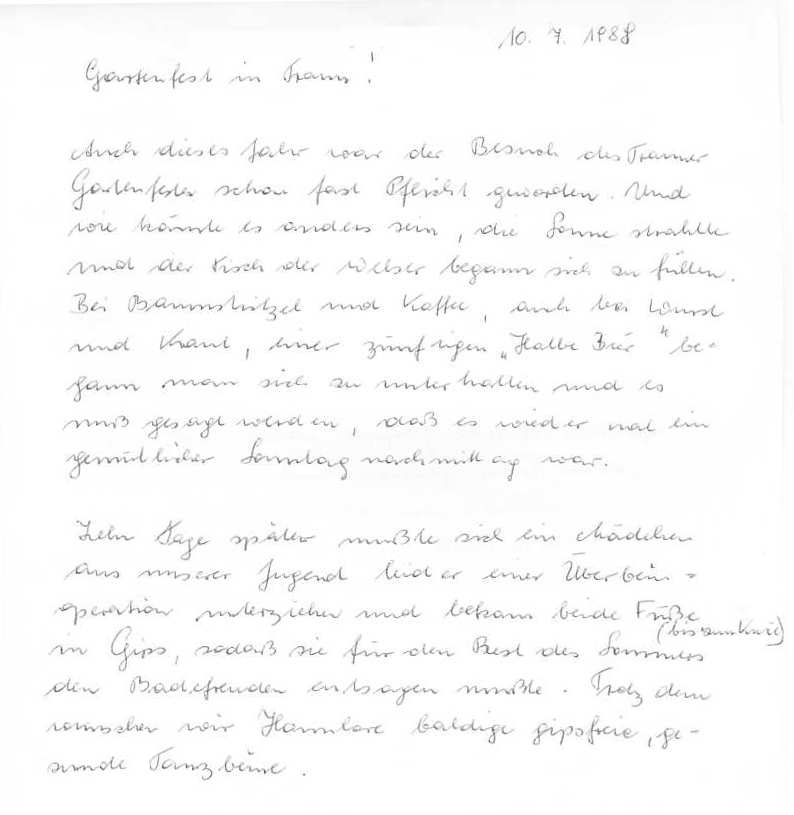 10. 7. 1988
Gartenfest in Traun!
Auch dieses Jahr war der Besuch des Trauner
Gartenfestes schon fast Pflicht geworden. Und
wie könnte es anders sein, die Sonne strahlte
und der Tisch der Welser begann sich zu füllen.
Bei Baumstritzel und Kaffee, auch bei Wurst
und Kraut, einer zünftigen „Halbe Bier" be-
gann man sich zu unterhalten und es
muß gesagt werden, daß es wieder mal ein
gemütlicher Sonntagnachmittag war.
Zehn Tage später mußte sich ein Mädchen
aus unserer Jugend leider einer Überbein-
operation unterziehen und bekam beide Füße
(bis zum Knie)
in Gips, sodaß sie für den Rest des Sommers
den Badefreuden entsagen mußte. Trotz dem
wünschen wir Hannlore baldige gipsfreie, ge-
sunde Tanzbeine.